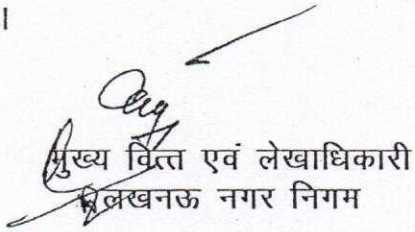 ।
मुख्य वित्त एवं लेखाधिकारी
लखनऊ नगर निगम